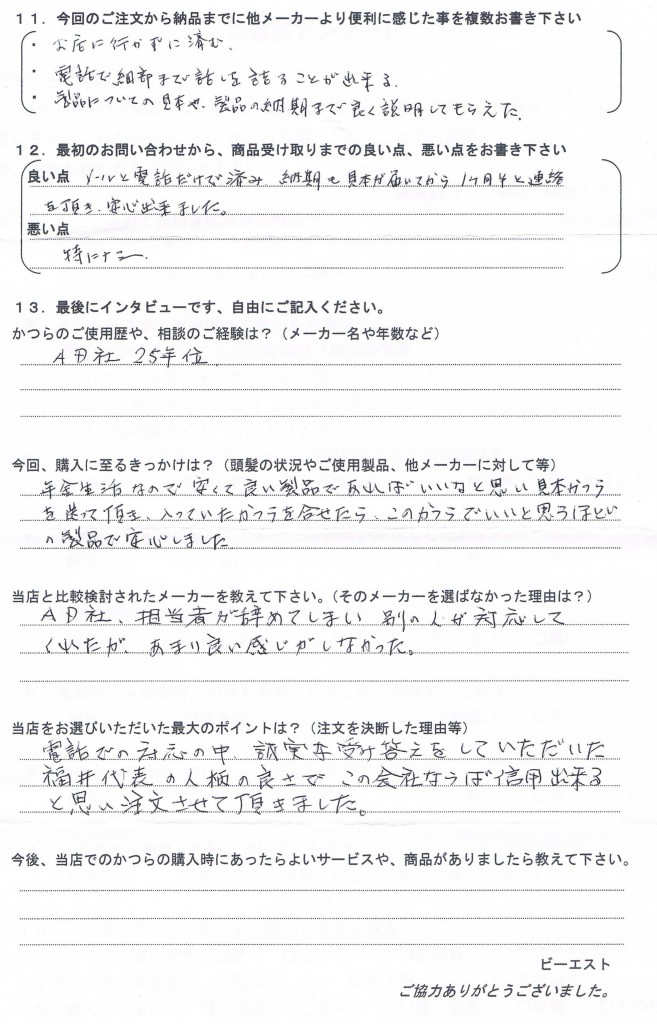 １１．今回のご注文から納品までに他メーカーより便利に感じた事を複数お書き下さい
・お店に行かずに済む.
・電話で細部まで話しを詰ることが出来る.
・製品についての見本や、製品の納期まで良く説明してもらえた.
１２．最初のお問い合わせから、商品受け取りまでの良い点、悪い点をお書き下さい
良い点 メールと電話だけで済み 納期も見本が届いてから1ヶ月半と連絡
を頂き、安心出来ました。
悪い点
特になし.
１３．最後にインタビューです、自由にご記入ください。
かつらのご使用歴や、相談のご経験は？（メーカー名や年数など）
AD社 25年位.
今回、購入に至るきっかけは？（頭髪の状況やご使用製品、他メーカーに対して等）
年金生活なので安くて良い製品であればいいなと思い見本かつら
を送って頂き、入っていたかつらを合せたら、このかつらでいいと思うほど
の製品で安心しました
当店と比較検討されたメーカーを教えて下さい。（そのメーカーを選ばなかった理由は？）
AD社、担当者が辞めてしまい 別の人が対応して
くれたが、あまり良い感じがしなかった。
当店をお選びいただいた最大のポイントは？（注文を決断した理由等）
電話での対応の中、誠実な受け答えをしていただいた
福井代表の人柄の良さで この会社ならば信用出来る
と思い注文させて頂きました。
今後、当店でのかつらの購入時にあったらよいサービスや、商品がありましたら教えて下さい。
ビーエスト
ご協力ありがとうございました。